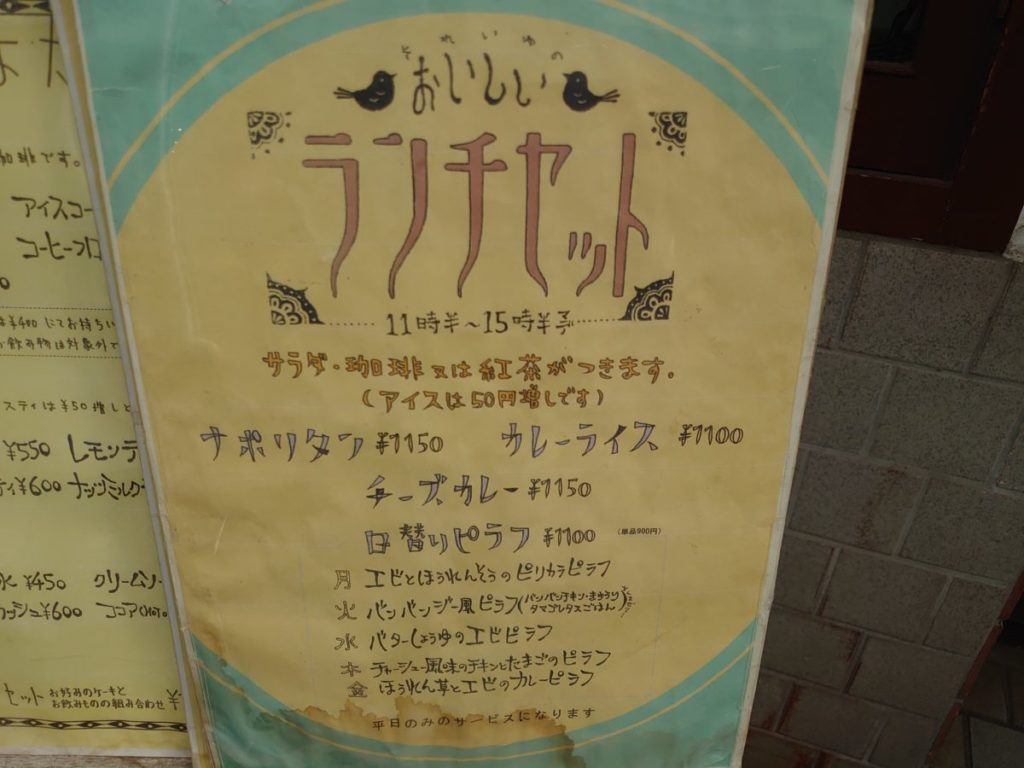 それいゆの
おいしい
ランチセット
11時半~15時半
サラダ・珈琲又は紅茶がつきます。
(アイスは50円増しです)
ナポリタン ¥1150 カレーライス ¥1100
チーズカレー ¥1150
日替りピラフ ¥1100 (単品900円)
月 エビとほうれんそうのピリカラピラフ
火 バンバンジー風ピラフ(バンバンチキン・きゅうり
タマゴレタスごはん)
水 バターしょうゆのエビピラフ
木 チャーシュー風味のチキンとたまごのピラフ
金 ほうれん草とエビのカレーピラフ
平日のみのサービスになります
珈琲です。
アイスコー
コーヒーフロ
¥400 にてお持ちい
飲み物は対象外で
スティは¥50増しと
¥550 レモンテ
ティ¥600 ナッツミルク
¥450 クリームソー
ッシュ¥600 ココア(HOT
セット お好みのケーキと
お飲みものの組み合わせ ¥